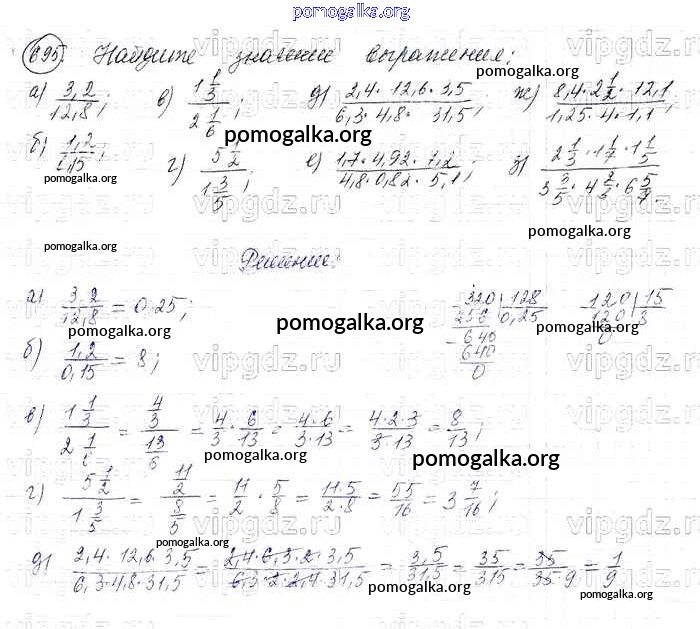 pomogalka.org
695. Найдите значение выражения:
а) 3,2/12,8; в) 1 1/3 / 2 1/6; д) 2,4 · 12,6 · 3,5 / 6,3 · 4,8 · 31,5; ж) 8,4 · 2 1/2 · 12,1 / 1,25 · 4 · 1,1;
б) 1,2/0,15; г) 5 1/2 / 1 3/5; е) 1,7 · 4,92 · 7,2 / 4,8 · 0,82 · 5,1; з) 2 1/3 · 1 1/7 · 1 1/5 / 3 3/5 · 4 2/3 · 6 5/7.
pomogalka.org
pomogalka.org
pomogalka.org
pomogalka.org
Решение:
а) 3,2/12,8 = 0,25; 320 | 128 120 | 15
256 0,25 120
640
640
0 0
pomogalka.org
pomogalka.org
pomogalka.org
б) 1,2/0,15 = 8;
в) 1 1/3 / 2 1/6 = 4/3 / 13/6 = 4/3 · 6/13 = 4·6/3·13 = 4·2·3/3·13 = 8/13;
pomogalka.org
pomogalka.org
г) 5 1/2 / 1 3/5 = 11/2 / 8/5 = 11/2 · 5/8 = 11·5/2·8 = 55/16 = 3 7/16;
pomogalka.org
д) 2,4 · 12,6 · 3,5 / 6,3 · 4,8 · 31,5 = 2,4 · 6,3 · 2 · 3,5 / 6,3 · 2 · 2,4 · 31,5 = 3,5/31,5 = 35/315 = 35/35·9 = 1/9
pomogalka.org
pomogalka.org
pomogalka.org
vipgdz.ru